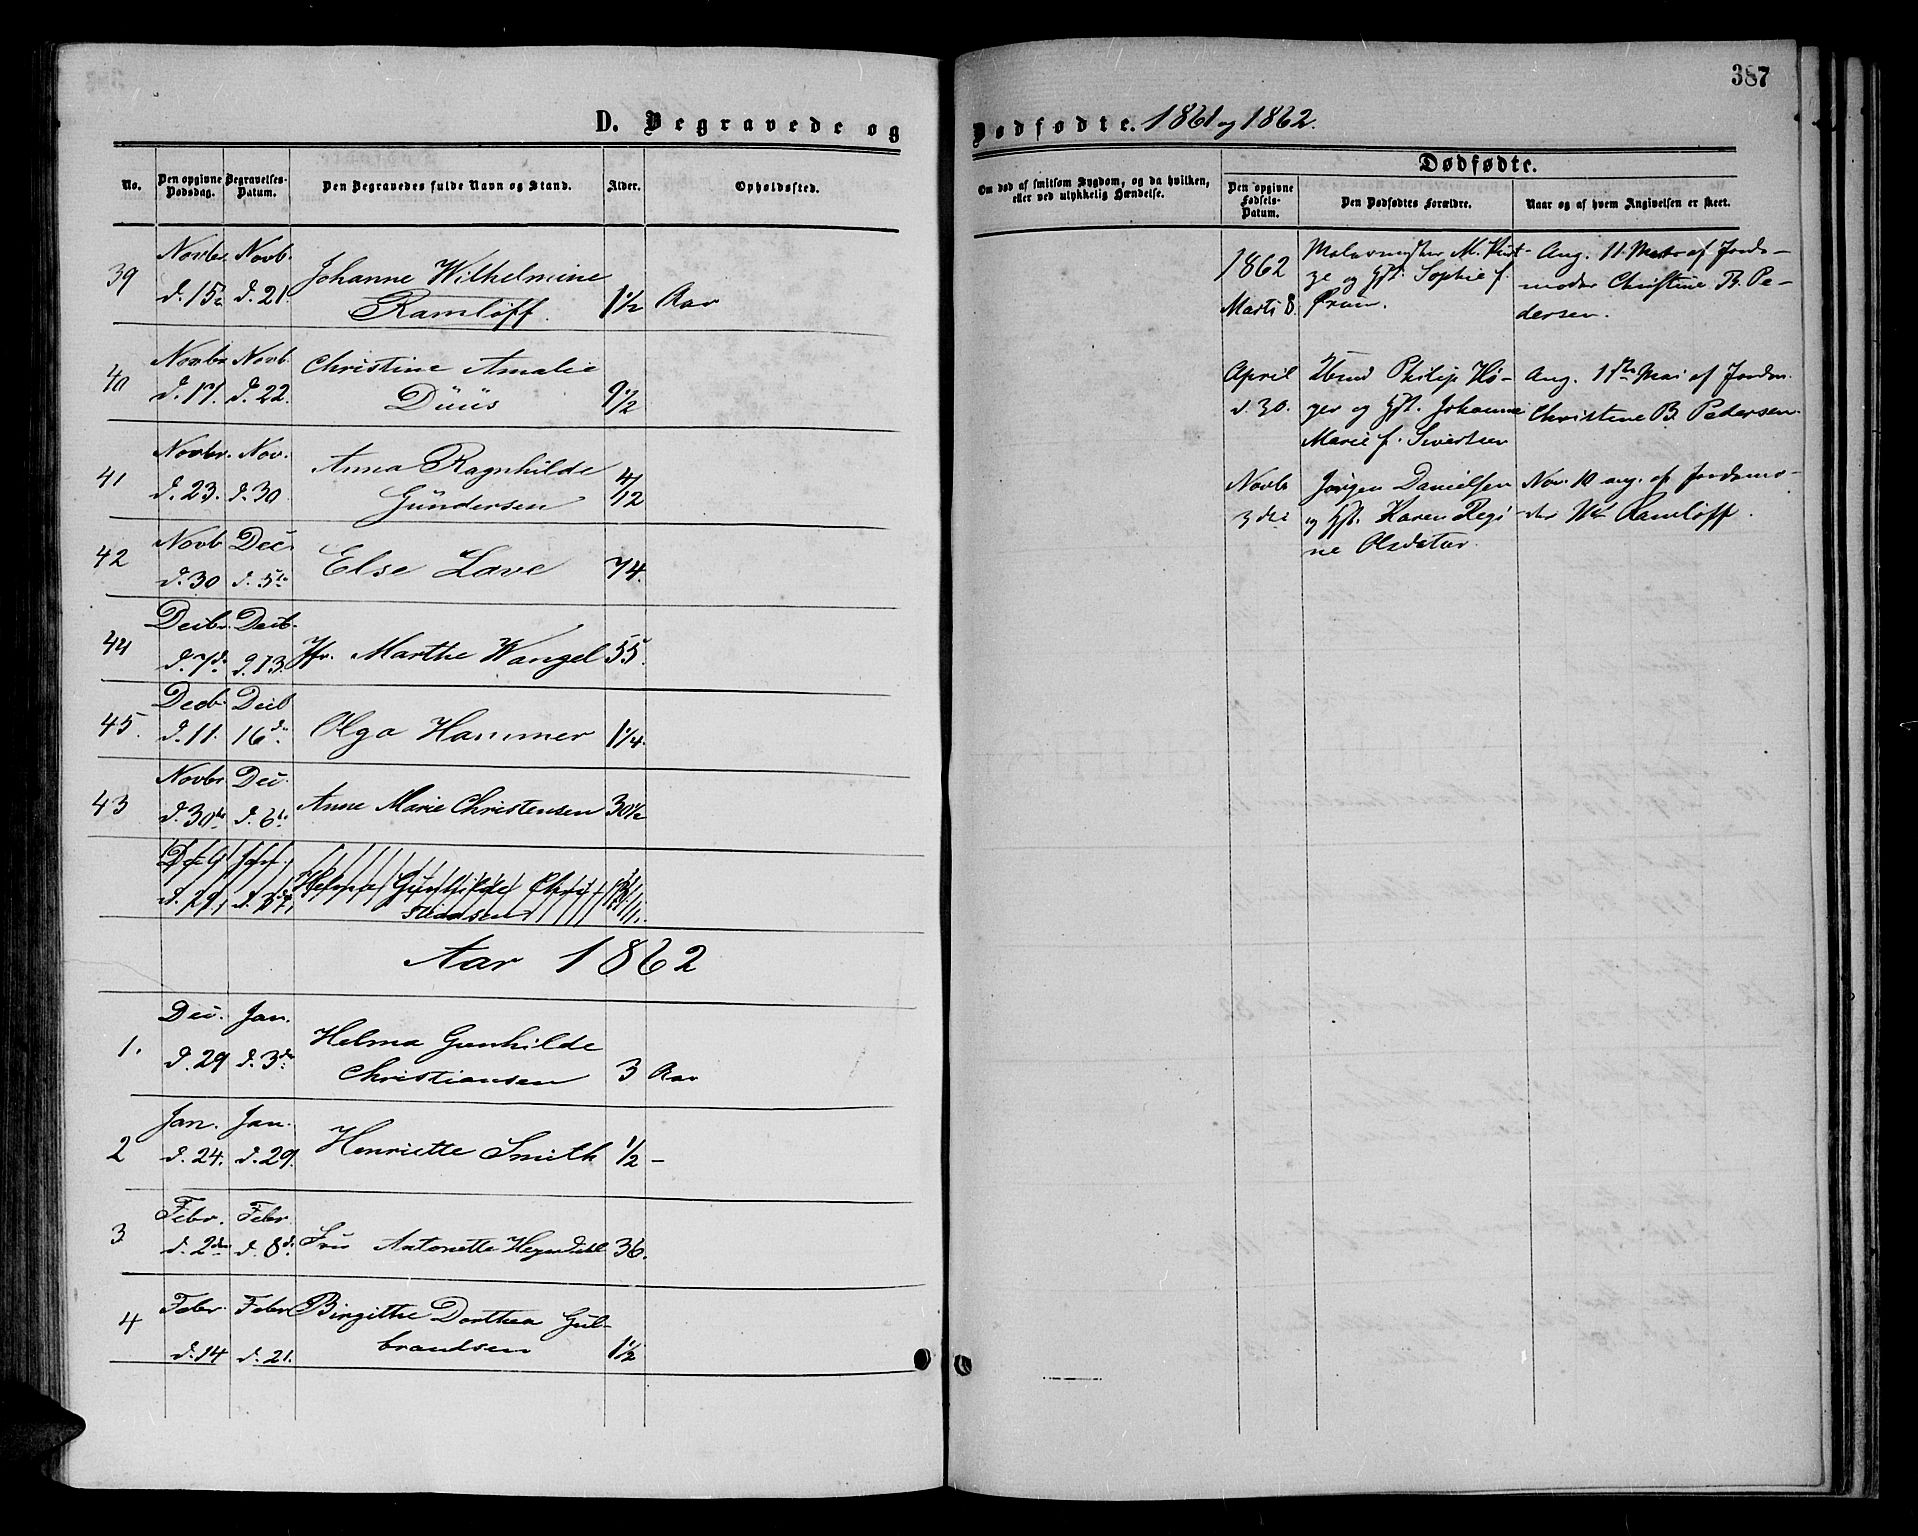 387
D. Begravede og
Dødfødte. 1861 og 1862.
No.
Den opgivne Dødsdag.
Begravelses-Datum.
Den Begravedes fulde Navn og Stand.
Alder.
Opholdssted.
Om død af smitsom Sygdom, og da hvilken, eller ved ulykkelig Hændelse.
Dødfødte.
Den opgivne Fødsels-Datum.
Den Dødfødtes Forældre.
Naar og af hvem Angivelsen er skeet.
39 Novbr. Novb. Johanne Wilhelmine
d. 15. d. 21. Ramløff. 1 1/2 Aar
40 Novbr Novb. Christine Amalie
d. 17. d. 22. Düüs 9 1/2
41 Novbr. Nov. Anna Ragnhilde
d. 23. d. 30. Gündersen 4/12
42 Novb Dec. Else Love 74.
d. 30 d. 5te
44 Decbr. Decb. Jfr. Marthe Wangel 55.
d. 7de d. 13.
45. Decb. Decb Olga Hammer 1 1/4.
d. 11. 16de
43 Novbr. Dec. Anne Marie Christensen 30 1/2
d. 30te d. 6te
Dec Jan. Helma Gunhilde Chri-
d. 29, d. 3de stiansen
Aar 1862
1. Dec. Jan. Helma Gunhilde
d. 29 d. 3de Christiansen 3 Aar
2 Jan. Jan. Henriette Smith 1/2 –
d. 24. d. 29.
3 Febr. Febr. Fru Antonette Heyerdahl 36.
d. 2den d. 8de
4 Febr. Febr Birgithe Dorthea Gul-
d. 14 d. 21. brandsen 1 1/2
1862 Malermester M.
Marts 8. ge og Hst. Sophie f.
Ørum.
Ang. 11 Marts af Jorde-
moder Christine B. Pe-
dersen.
April Philip Hø-
d. 30. ger og Hst. Johanne
Marie f. Sivertsen
Ang. 1ste Mai af Jordm.
Christine B. Pedersen.
Novbr Jørgen Danielsen
3die og Hst. Karen Regi
ne Olsdatter.
Nov. 10 ang. af Jordemo-
der Ramløff.